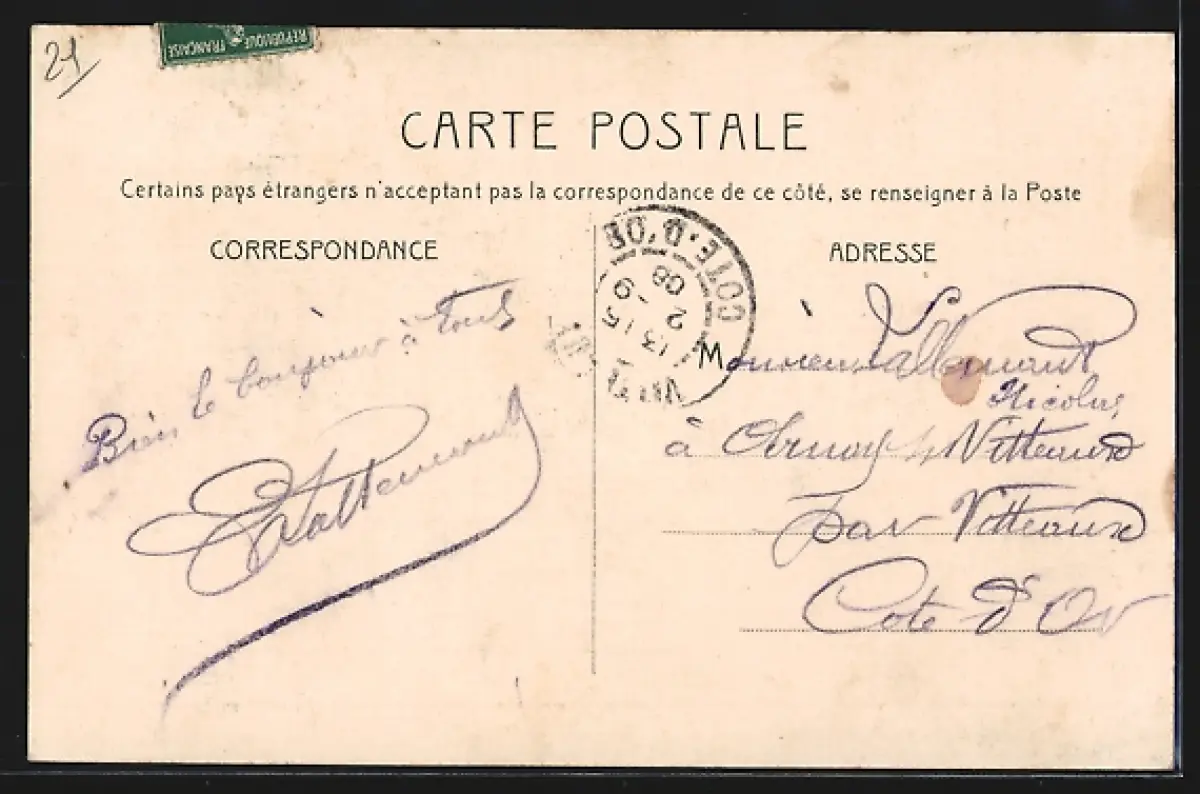 21
REPUBLIQUE FRANÇAISE
CARTE POSTALE
Certains pays étrangers n'acceptant pas la correspondance de ce côté, se renseigner à la Poste
CORRESPONDANCE
Bien le bonjour à Tous
Lallemant
ADRESSE
COTE-D'OR
13 15
2 -9
08
Monsieur Lallemant
Nicolas
à Arnay s/ Vitteaux
par Vitteaux
Cote d'Or